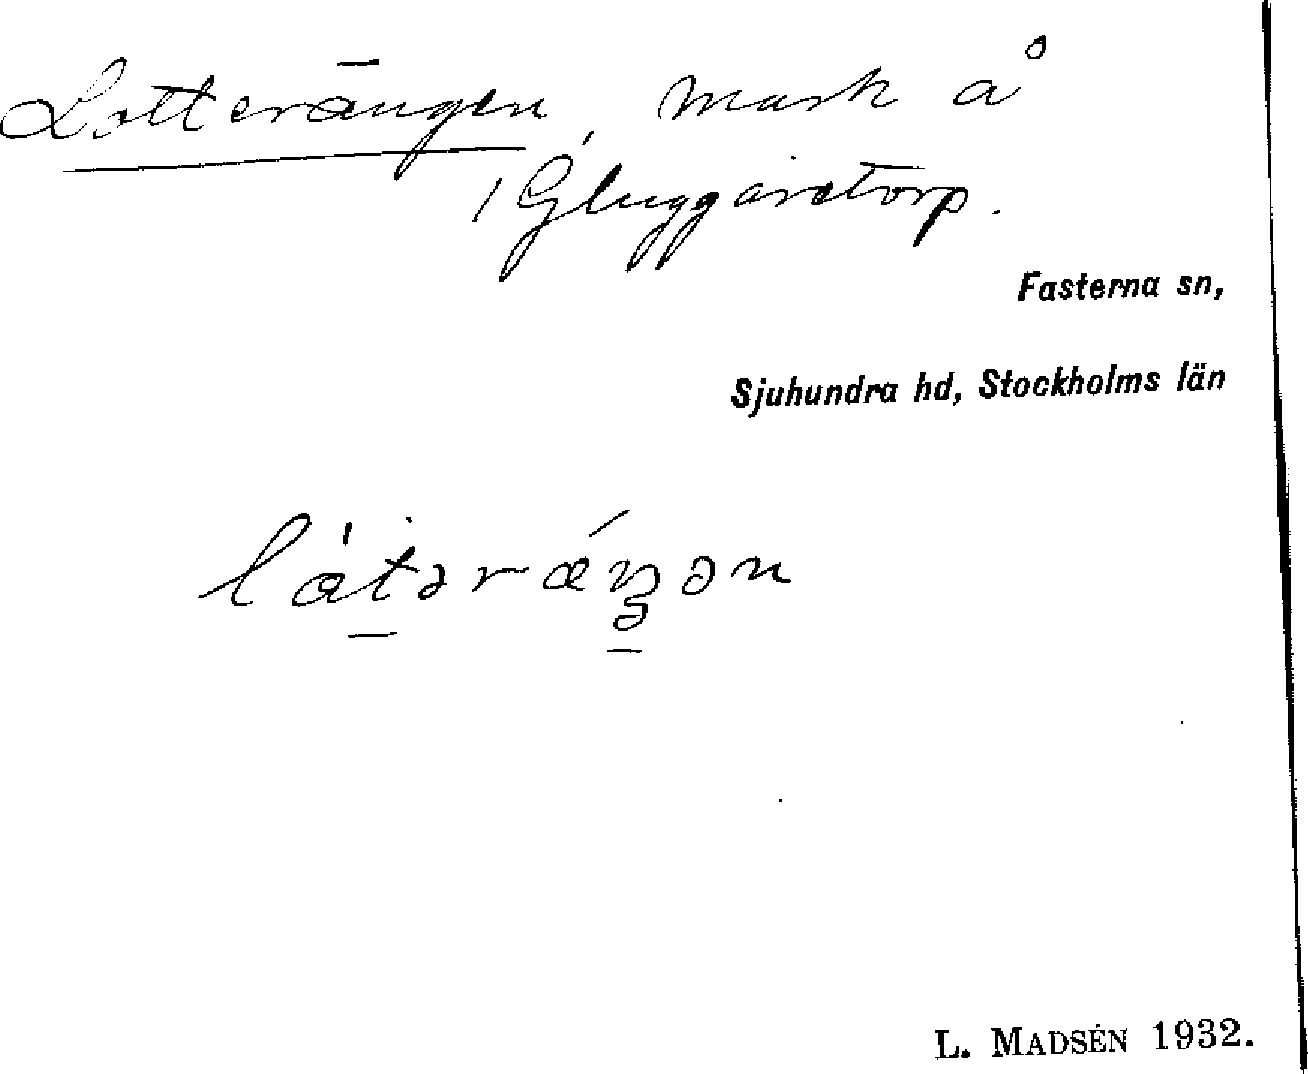 Lotterängen, mark å
/ Gluggarstorp.
Fasterna sn,
Sjuhundra hd, Stockholms län
L. MADSÉN 1932.